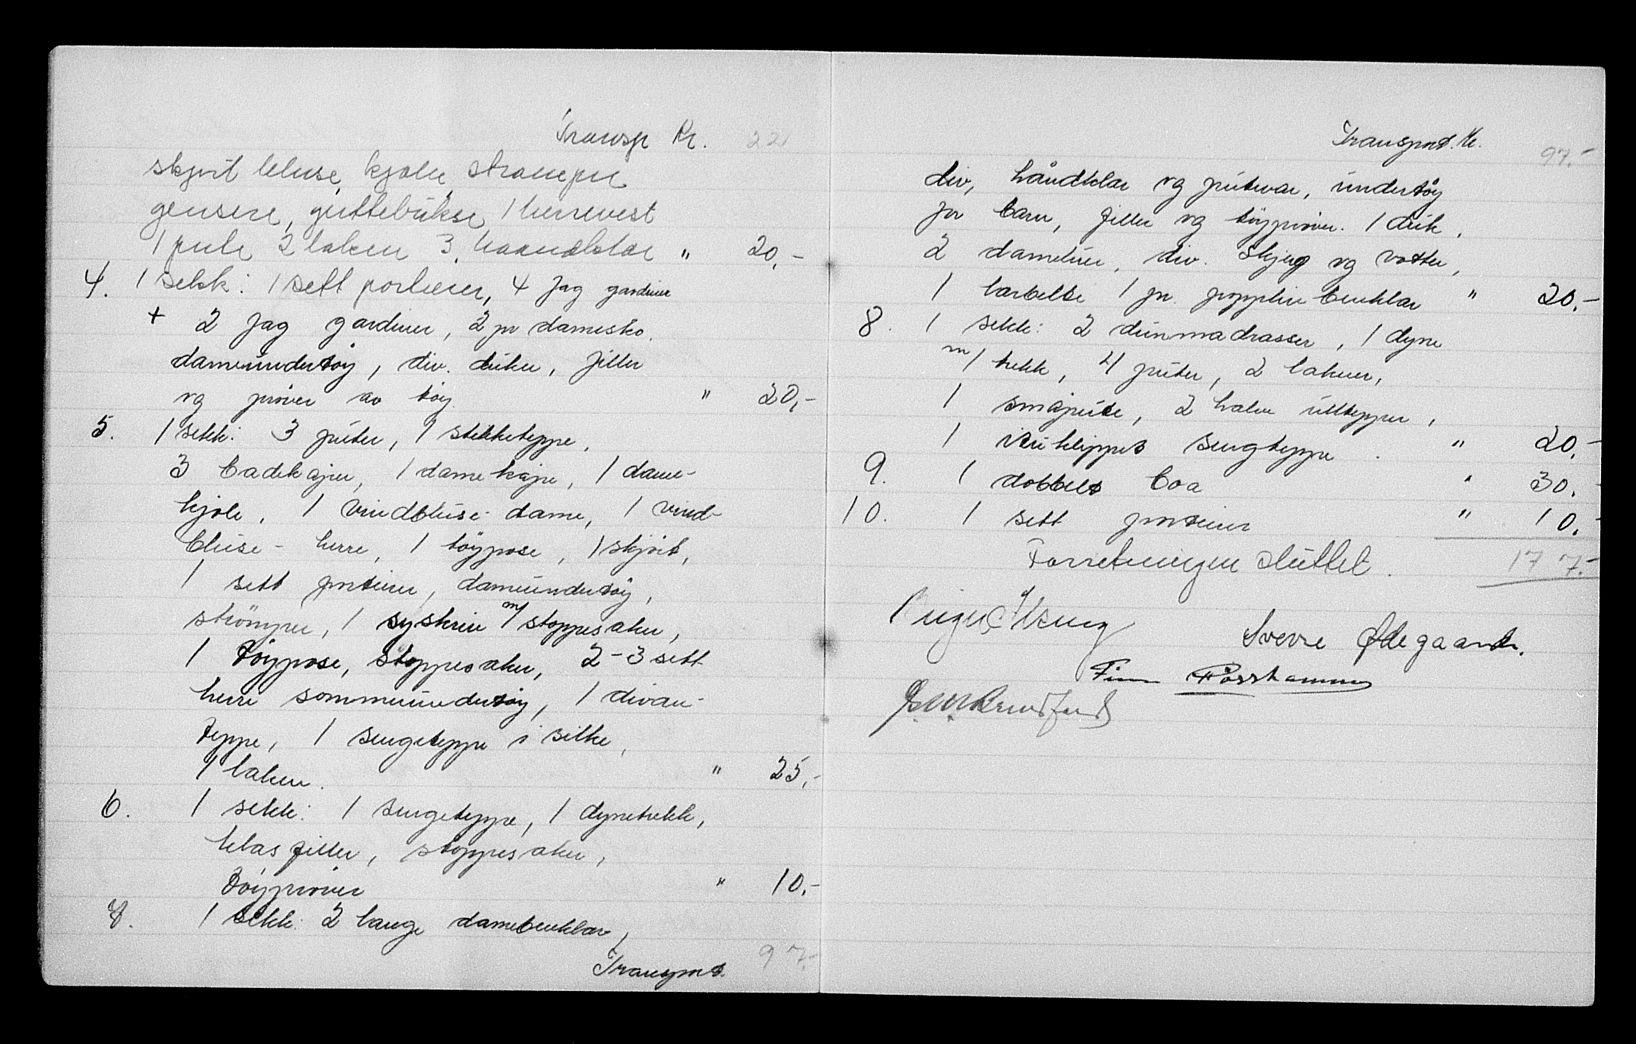 Transp Kr. 22,
skjört bluse, kjole, strømper
gensere, guttebukse, 1 herrevest
1 pute 2 laken 3 haandklær " 20,-
4. 1 sekk: 1 sett portierer, 4 fag gardiner
+ 2 fag gardiner, 2 pr damesko.
dameundertøy, div. duker, filler
og prøver av tøy. " 20,-
5. 1 sekk: 3 puter, 1 stikketeppe,
3 badekåper, 1 damekåpe, 1 dame-
kjole, 1 vindbluse- dame, 1 vind-
bluse - herre, 1 tøypose, 1 skjört,
1 sett portierer, dameundertøy,
strömper, 1 syskrin m/ stoppesaker,
1 tøypose, stoppesaker, 2-3 sett
herre sommerundertøy, 1 divan-
teppe, 1 sengeteppe i silke,
1 laken. " 25,-
6. 1 sekk: 1 sengeteppe, 1 dynetrekk,
klasfiller, stoppesaker,
tøyprøver " 10,-
7. 1 sekk: 2 lange damebenklær,
Transport. 97.-
Transport. Kr. 97.-
div, håndklær og putevar, undertøy
for barn, filler og tøyprøver. 1 duk,
2 dameluer, div. skjerf og votter,
1 barbelte 1 pr. popplin benklær " 20.-
8. 1 sekk: 2 dunmadrasser, 1 dyne
m/ trekk, 4 puter, 2 lakner,
1 småpute, 2 halve ullepper,
1 sengteppe. " 20.-
9. 1 dobbelt boa " 30.-
10. 1 sett portierer " 10.-
Forretningen sluttet. 177.-
Sverre Ødegaard.
Finn